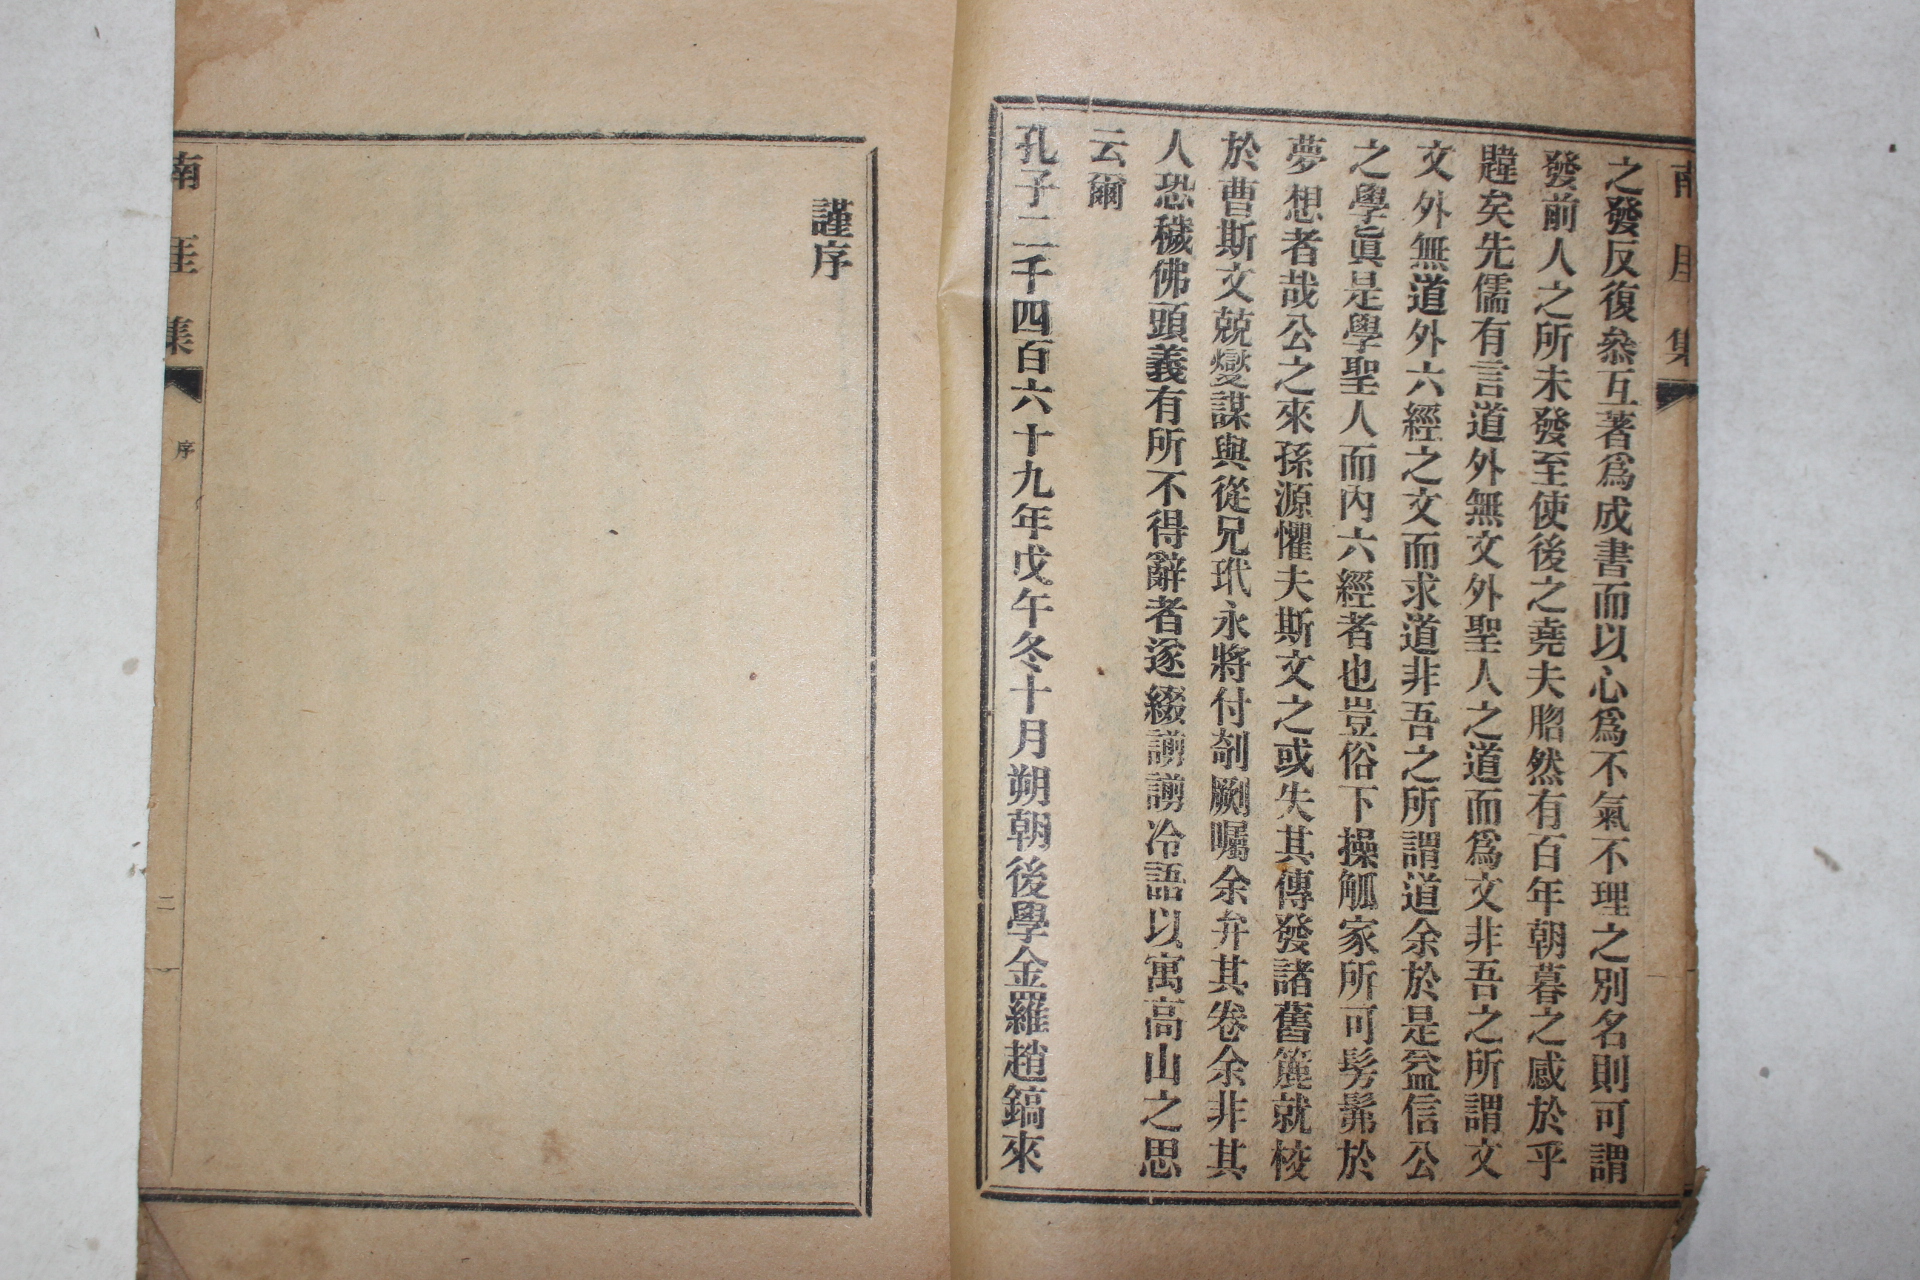 南厓集
之發反復叅互著爲成書而以心爲不氣不理之別名則可謂
發前人之所未發至使後之堯夫䏚然有百年朝暮之感於乎
韙矣先儒有言道外無文外聖人之道而爲文非吾之所謂文
文外無道外六經之文而求道非吾之所謂道余於是益信公
之學眞是學聖人而內六經者也豈俗下操觚家所可髣髴於
夢想者哉公之來孫源懼夫斯文之或失其傳發諸舊簏就校
於曹斯文兢燮謀與從兄玳永將付剞劂囑余弁其卷余非其
人恐穢佛頭義有所不得辭者遂綴謭謭冷語以寓高山之思
云爾
孔子二千四百六十九年戊午冬十月朔朝後學金羅趙鎬來
謹序
南厓集
序
二